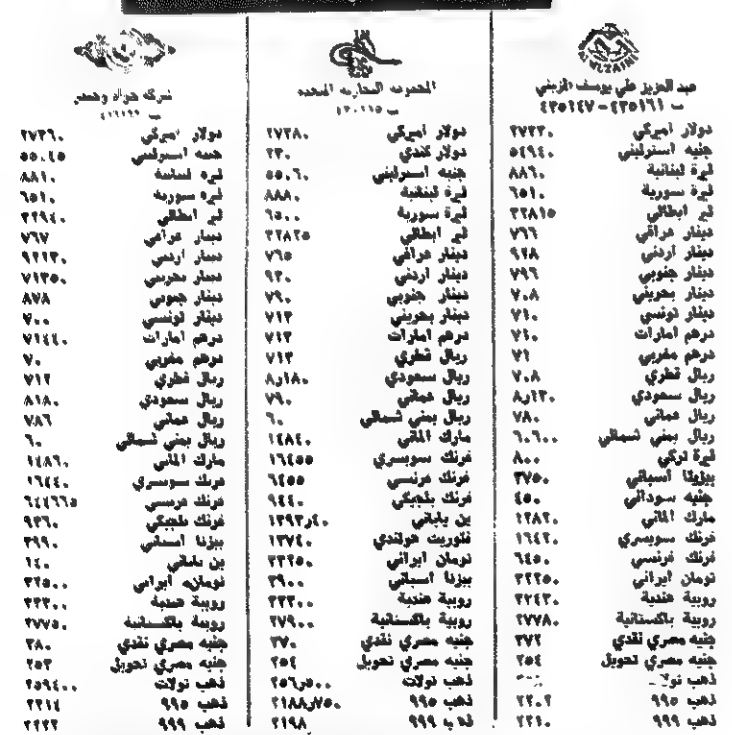 AL MUZAINI
عبد العزيز علي يوسف المزيني
ت ٤٣٥١٦١ - ٤٣٥١٤٧
دولار اميركي ٢٧٢٣٠
جنيه استرليني ٥٤٩٤٠
ليرة لبنانية ٨٨٦٠
ليرة سورية ٦٥١٠
لير ايطالي ٢٢٨١٥
دينار عراقي ٧٦٦
دينار أردني ٩٢٨
دينار جنوبي ٧٩٦
دينار بحريني ٧٠٨
دينار تونسي ٧١٠
درهم امارات ٧١٠
درهم مغربي ٧١
ريال قطري ٧٠٨
ريال سعودي ٨٫١٣٠
ريال عماني ٧٨٠
ريال يمني شمالي ٦٠٦٠٠
ليرة تركي ٨٠٠
بيزيتا أسباني ٣٧٥٠
جنيه سوداني ٤٥٠
مارك الماني ١٣٨٢٠
فرنك سويسري ١٦٤٢٠
فرنك فرنسي ٦٤٥٠
تومان ايراني ٣٢٢٥٠
روبية هندية ٣٢٤٣٠
روبية باكستانية ٢٧٧٨٠
جنيه مصري نقدي ٣٧٢
جنيه مصري تحويل ٢٥٤
ذهب تولات
ذهب ٩٩٥ ٢٢٠٢
ذهب ٩٩٩ ٢٢١٠
المجموعه التجاريه المتحده
دولار اميركي ٢٧٢٨٠
دولار كندي ٢٣٠
جنيه استرليني ٥٥٠٦٠
ليرة لبنانية ٨٨٨٠
ليرة سورية ٦٥٠٠
لير ايطالي ٢٢٨٢٥
دينار عراقي ٧٦٥
دينار أردني ٩٣٠
دينار جنوبي ٧٩٠
دينار بحريني ٧١٣
درهم امارات ٧١٣
ريال قطري ٧١٣
ريال سعودي ٨٫١٨٠
ريال عماني ٧٩٠
ريال يمني شمالي ٦٠
مارك الماني ١٤٨٤٠
فرنك سويسري ١٦٤٥٥
فرنك فرنسي ٦٤٥٥
فرنك بلجيكي ٩٤٤٠
ين ياباني ١٣٩٣٫٤٠
فلوريت هولندي ١٣٧٤٠
تومان ايراني ٣٢٢٥٠
بيزتا أسباني ٣٩٠٠
روبية هندية ٣٣٣٠٠
روبية باكستانية ٢٧٩٠٠
جنيه مصري نقدي ٣٧٠
جنيه مصري تحويل ٢٥٤
ذهب تولات ٢٥٦٫٥٠٠
ذهب ٩٩٥ ٢١٨٨٫٧٥٠
ذهب ٩٩٩ ٢١٩٨
شركة
دولار اميركي ٢٧٣٦٠
جنيه استرليني ٥٥٠٤٥
ليرة لبنانية ٨٨١٠
ليرة سورية ٦٥١٠
لير ايطالي ٢٢٩٤٠
دينار عراقي ٧٦٧
دينار أردني ٩٢١٣٠
دينار بحريني ٧١٣٥٠
دينار جنوبي ٨٧٨
دينار تونسي ٧٠٠
درهم امارات ٧١٤٤٠
درهم مغربي ٧٠
ريال قطري ٧١٢
ريال سعودي ٨١٨٠
ريال عماني ٧٨٦
ريال يمني شمالي ٦٠
مارك الماني ١٤٨٦٠
فرنك سويسري ١٦٤٤٠
فرنك فرنسي ٦٤٤٦٦٥
فرنك بلجيكي ٩٣٦٠
بيزتا اسباني ٣٩٩٠
ين ياباني ١٤٠
تومان ايراني ٣٢٥٠٠
روبية هندية ٣٣٣٠٠
روبية باكستانية ٢٧٧٥٠
جنيه مصري نقدي ٣٨٠
جنيه مصري تحويل ٢٥٣
ذهب تولات ٢٥٩٤٠٠
ذهب ٩٩٥ ٢٢١٤
ذهب ٩٩٩ ٢٢٢٢